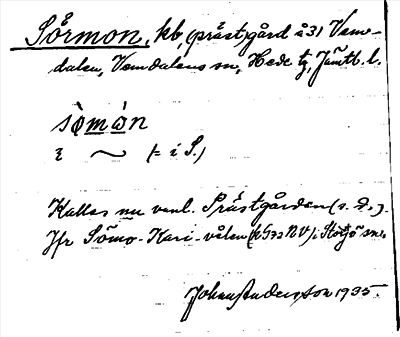 Sörmon, kb, (präst)gård å 31 Vem-
dalen, Vemdalens sn, Hede tg, Jämtl. l.
sò̱mò̱n
i ~ (= i S.)
Kallas nu vanl. Prästgården (s. d.).
Jfr Sömo-Kari-vålen i Storsjö sn.
Johan Andersson 1935.